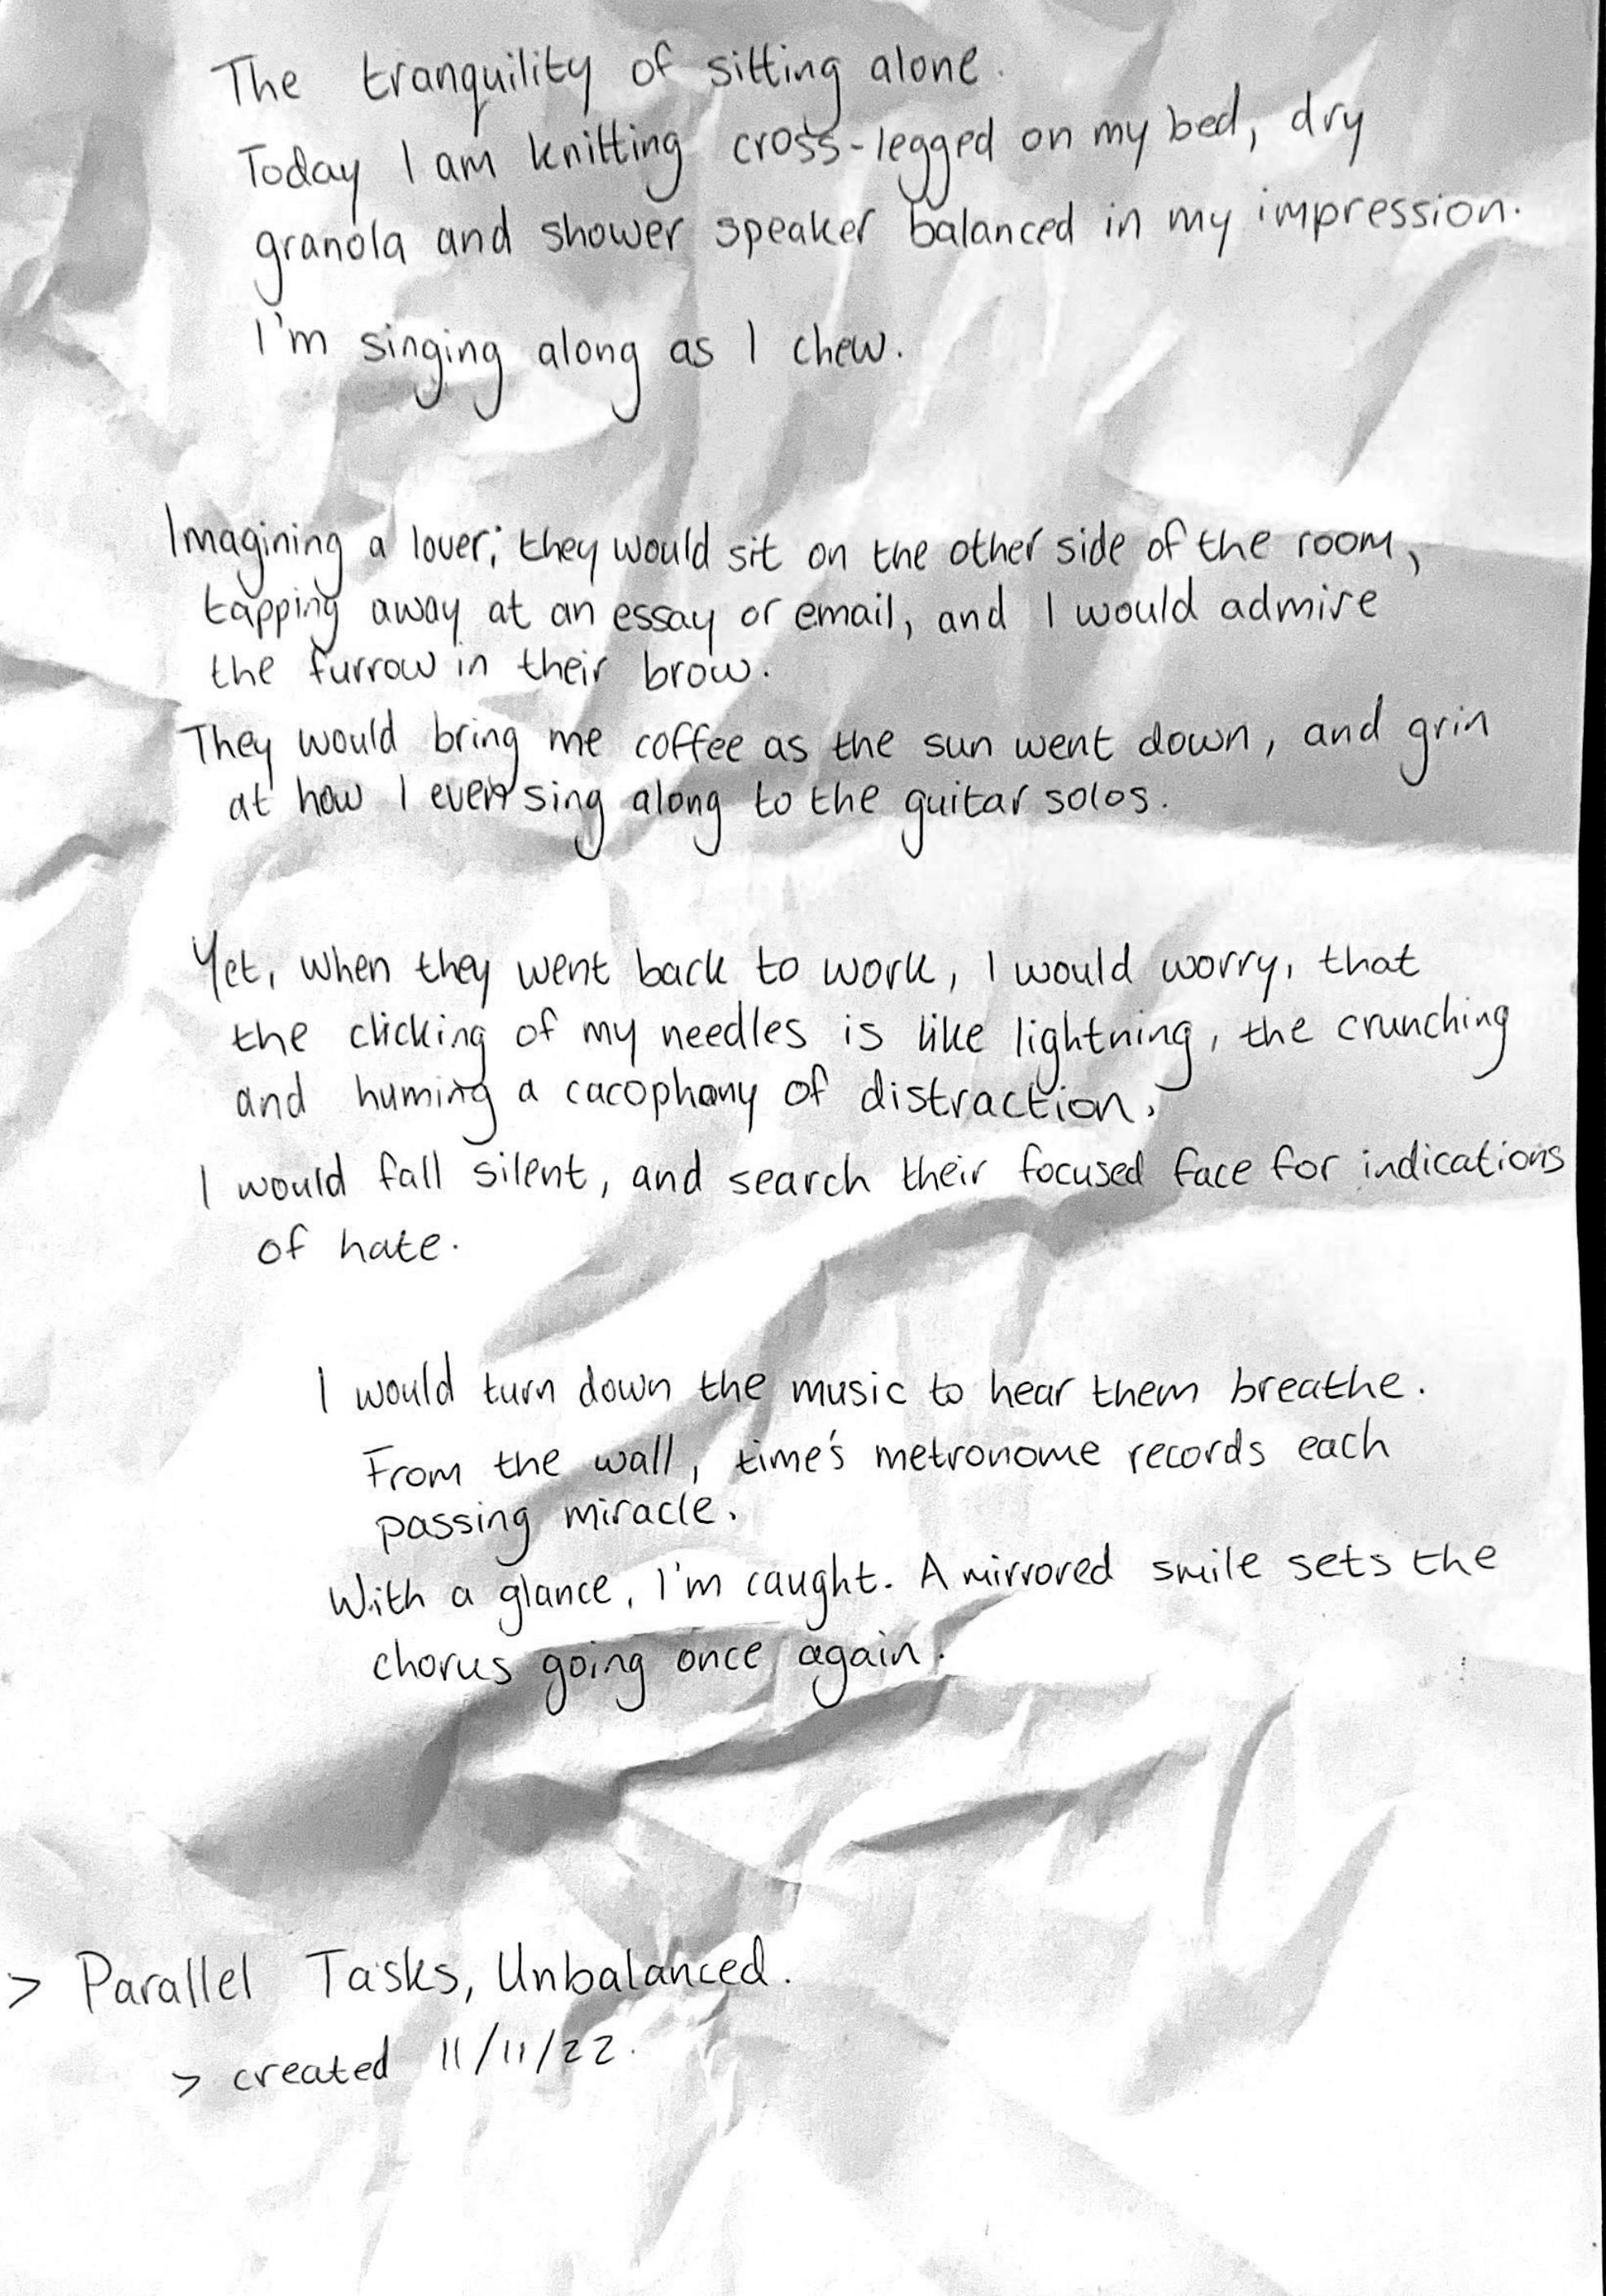 The tranquility of sitting alone.
Today I am knitting cross-legged on my bed, dry
granola and shower speaker balanced in my impression.
I'm singing along as I chew.
Imagining a lover; they would sit on the other side of the room,
tapping away at an essay or email, and I would admire
the furrow in their brow.
They would bring me coffee as the sun went down, and grin
at how I even sing along to the guitar solos.
Yet, when they went back to work, I would worry, that
the clicking of my needles is like lightning, the crunching
and huming a cacophony of distraction.
I would fall silent, and search their focused face for indications
of hate.
I would turn down the music to hear them breathe.
From the wall, time's metronome records each
passing miracle.
With a glance, I'm caught. A mirrored smile sets the
chorus going once again.
> Parallel Tasks, Unbalanced.
> created 11/11/22.